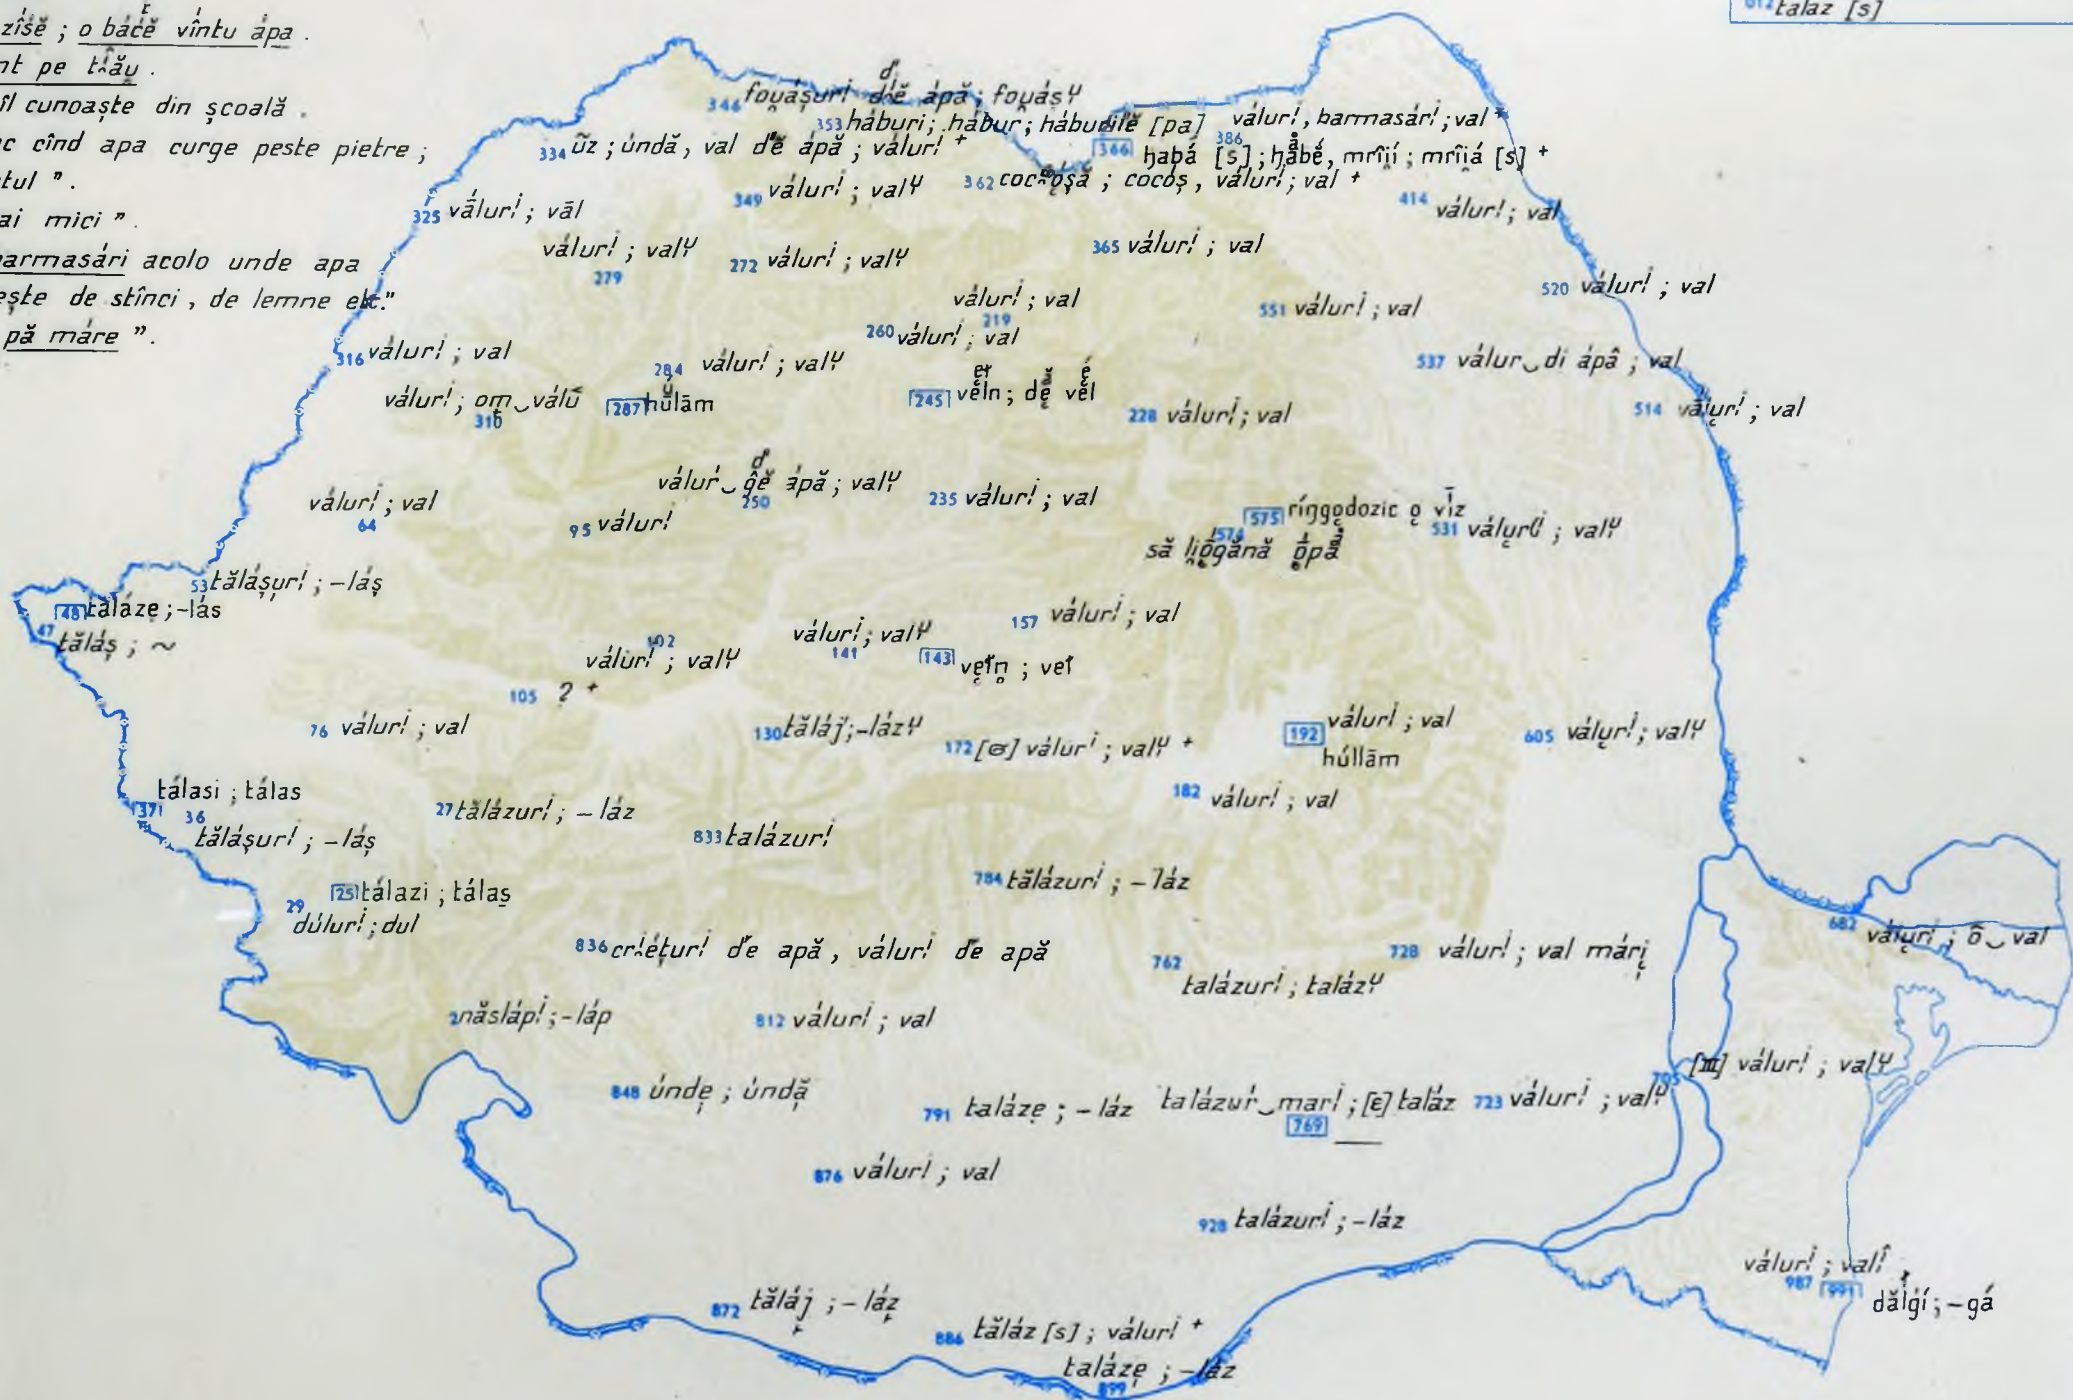 zîsĕ ; o báĉĕ vîntu ápa .
nt pe tắu .
îl cunoaşte din şcoală .
c cînd apa curge peste pietre ;
tul ” .
ai mici ” .
armasári acolo unde apa
eşte de stînci , de lemne etc.”
pă máre ” .
612 talaz [s]
346 fou̯áşuri d'ĕ ápă ; fou̯ásу
353 háburi ; hábur ; háburile [pa]
váluri , barmasári ; val +
386
334 ũz ; úndă , val d'ĕ ápă ; váluri +
366 ḫabá [s] ; ḫăbé , mrîií ; mrîiá [s] +
349 váluri ; valу
362 cocoşă ; cocoş , váluri ; val +
325 vắluri ; vāl
414 váluri ; val
váluri ; valу
279
272 váluri ; valу
365 váluri ; val
520 váluri ; val
váluri ; val
219
551 váluri ; val
260 váluri ; val
316 váluri ; val
284 váluri ; valу
537 válur‿di ápâ ; val
váluri ; om‿válŭ
310
287 húlām
245 véln ; dĕ vél
228 váluri ; val
514 váluri ; val
válur‿ĝĕ ápă ; valу
250
235 váluri ; val
váluri ; val
64
95 váluri
575 ríŋgodozic o vīz
574 să ligănă ópă
531 válurĭ ; valу
53 tăláşuri ; -láş
48 taláze ; -lás
47 tăláş ; ~
157 váluri ; val
102
váluri ; valу
váluri ; valу
141
143 vełn ; veł
105 ? +
76 váluri ; val
130 tăláj ; -lázу
172 [ɞ] váluri ; valу +
192 váluri ; val
húllām
605 váluri ; valу
182 váluri ; val
37 tálasi ; tálas
36 tăláşuri ; -láş
27 tălázuri ; -láz
833 talázuri
784 tălázuri ; -láz
25 tálazi ; tálaş
29 dúluri ; dul
836 criéţuri d'e apă , váluri d'e apă
762 talázuri ; talázу
728 váluri ; val mári
682 váluri ; õ‿val
2 năslápi ; -láp
812 váluri ; val
705 [III] váluri ; valу
848 únde ; úndă
791 taláze ; -láz
talázur‿mari ; [ɛ] taláz
769
723 váluri ; valу
876 váluri ; val
928 talázuri ; -láz
váluri ; valî
987
991 dălgí ; -gá
872 tăláj ; -láz
886 tăláz [s] ; váluri +
taláze ; -láz
899